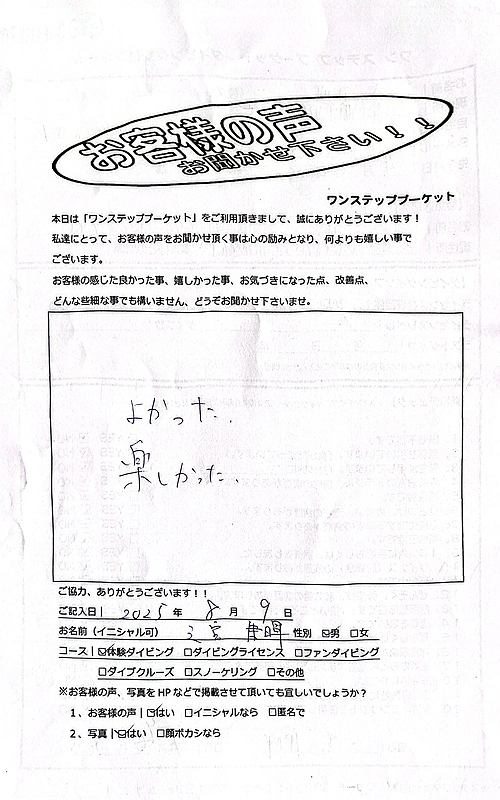 お客様の声
お聞かせ下さい！！
ワンステッププーケット
本日は「ワンステッププーケット」をご利用頂きまして、誠にありがとうございます！
私達にとって、お客様の声をお聞かせ頂く事は心の励みとなり、何よりも嬉しい事で
ございます。
お客様の感じた良かった事、嬉しかった事、お気づきになった点、改善点、
どんな些細な事でも構いません、どうぞお聞かせ下さいませ。
よかった.
楽しかった.
ご協力、ありがとうございます！！
ご記入日| 2025 年 8 月 9 日
お名前（イニシャル可） 性別 ☑男 □女
コース|☑体験ダイビング □ダイビングライセンス □ファンダイビング
□ダイブクルーズ □スノーケリング □その他
※お客様の声、写真をHPなどで掲載させて頂いても宜しいでしょうか？
1、お客様の声|☑はい □イニシャルなら □匿名で
2、写真|☑はい □顔ボカシなら